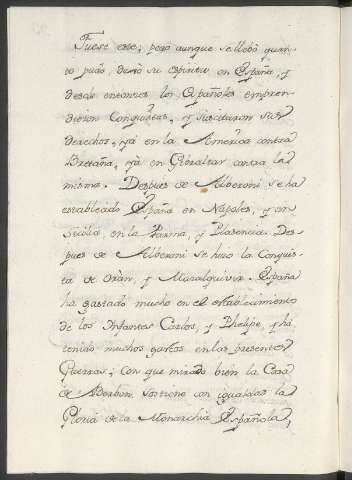 Fuese este; pero aunque se llebò quan-
to pudo, dexò su espiritu en España, y
desde entonces los Españoles empren-
dieron Conquistas, y suscitaron sus
derechos, yà en la America contra
Bretaña, yà en Gibraltar contra la
misma. Despues de Alberoni se ha
establecido España en Napoles, y en
Sicilia, en la Parma, y Plasencia. Des-
pues de Alberoni se hizo la Conquis-
ta de Oràn, y Mazalquivir. España
ha gastado mucho en el establecimiento
de los Infantes Carlos, y Phelipe, y hà
tenido muchos gastos en las presentes
Guerras; Con que mirado bien la Casa
de Borbon sostiene con igualdad la
Gloria de la Monarchia Española,